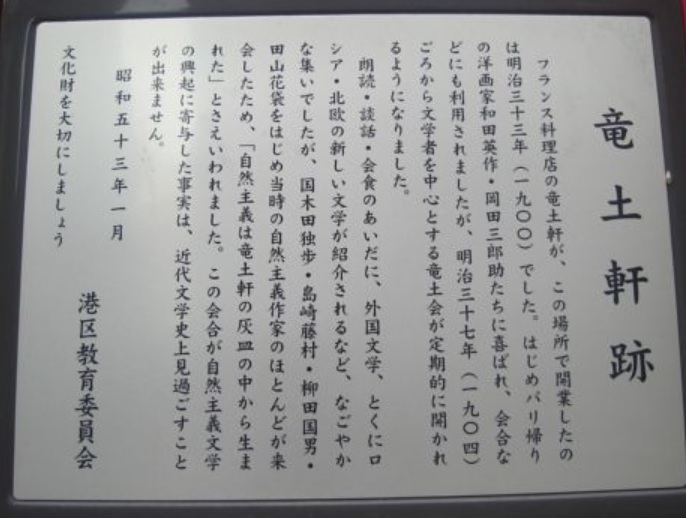 竜土軒跡
フランス料理店の竜土軒が、この場所で開業したの
は明治三十三年（一九〇〇）でした。はじめパリ帰り
の洋画家和田英作・岡田三郎助たちに喜ばれ、会合な
どにも利用されましたが、明治三十七年（一九〇四）
ごろから文学者を中心とする竜土会が定期的に開かれ
るようになりました。
朗読・談話・会食のあいだに、外国文学、とくにロ
シア・北欧の新しい文学が紹介されるなど、なごやか
な集いでしたが、国木田独歩・島崎藤村・柳田国男・
田山花袋をはじめ当時の自然主義作家のほとんどが来
会したため、「自然主義は竜土軒の灰皿の中から生ま
れた」とさえいわれました。この会合が自然主義文学
の興起に寄与した事実は、近代文学史上見過ごすこと
が出来ません。
昭和五十三年一月
港区教育委員会
文化財を大切にしましょう